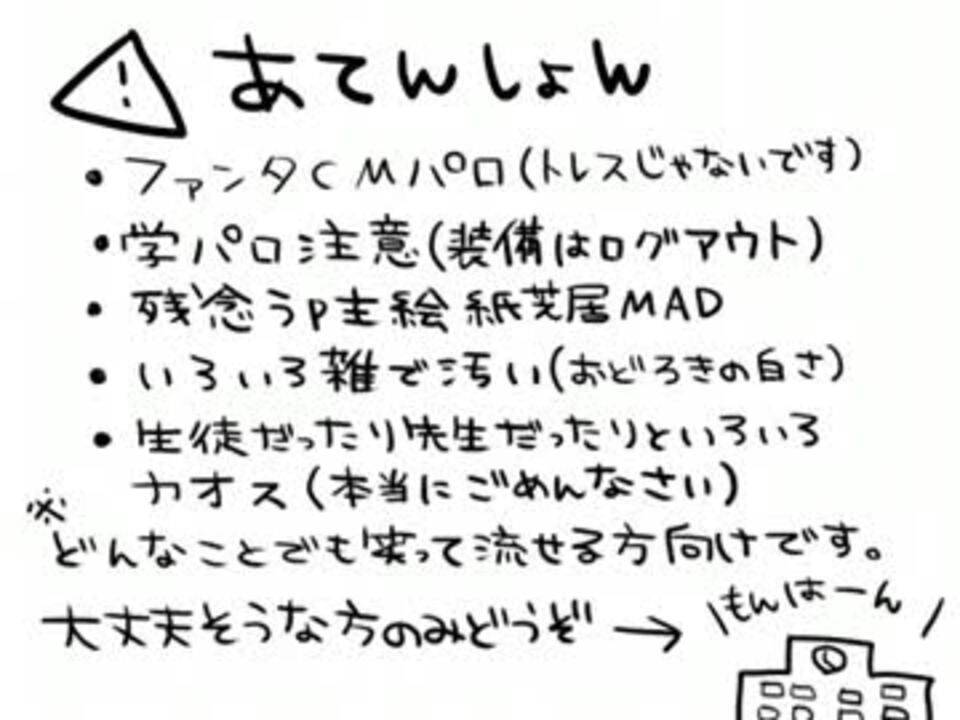 あてんしょん
・ファンタCMパロ(トレスじゃないです)
・学パロ注意(装備はログアウト)
・残念うp主絵紙芝居MAD
・いろいろ雑で汚い(おどろきの白さ)
・生徒だったり先生だったりといろいろ
カオス(本当にごめんなさい)
※
どんなことでも笑って流せる方向けです。
大丈夫そうな方のみどうぞ→
\もんはーん/